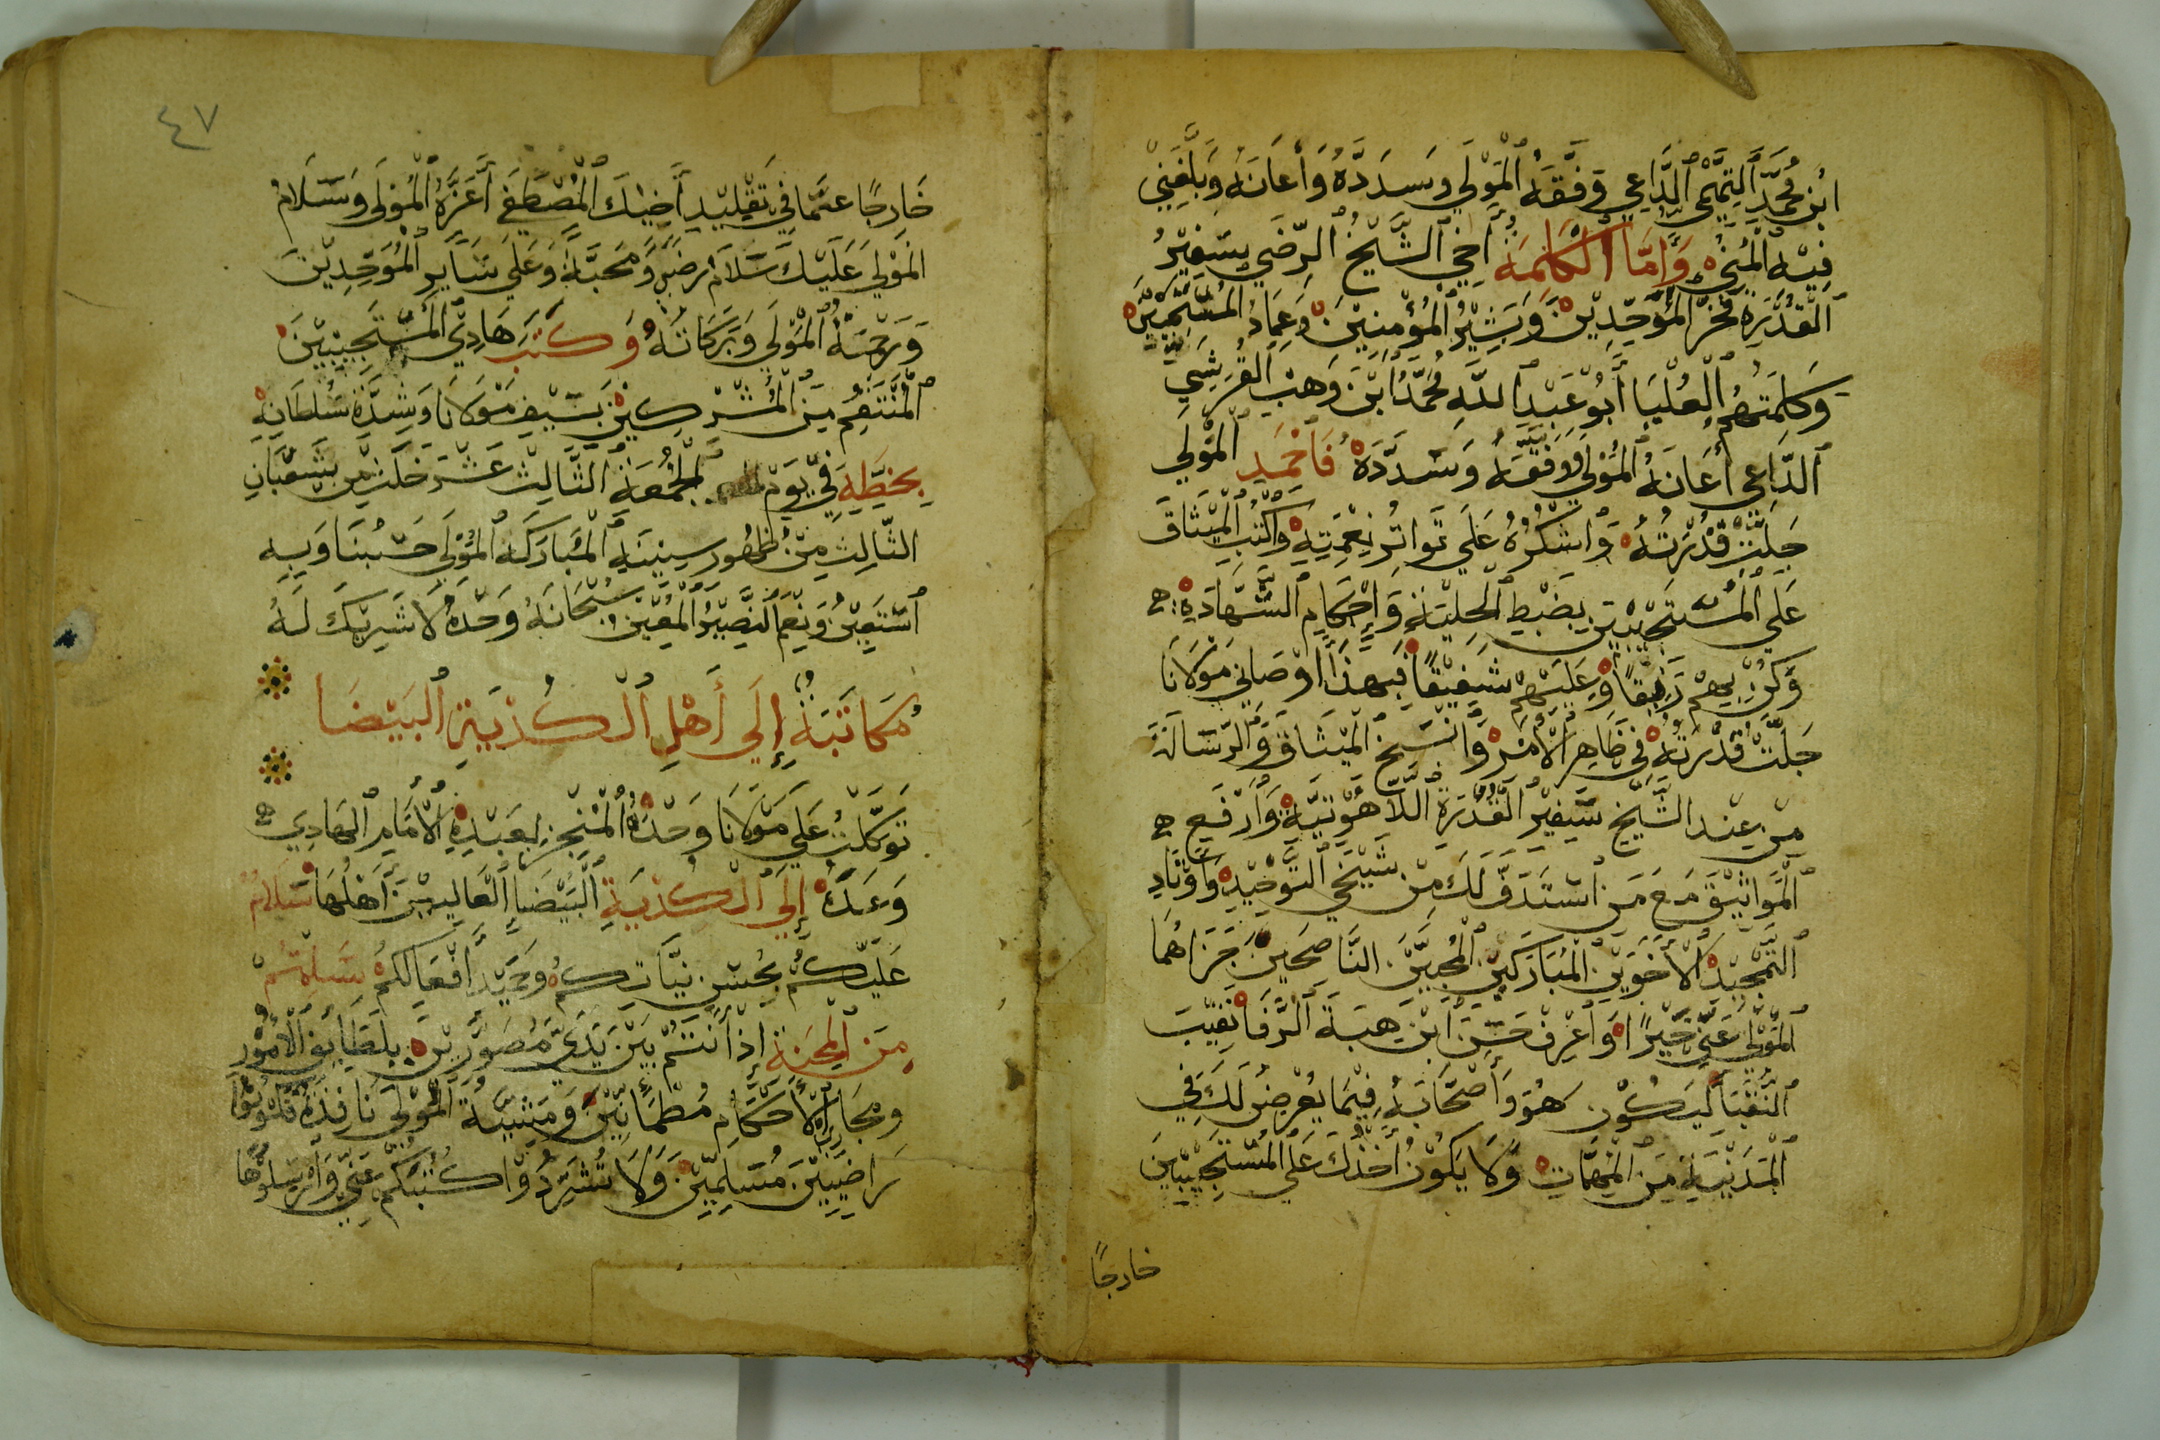 ابْنِ مُحَمَّدٍ التَّمِيْمِي الدَّاعِي وَفَّقَهُ الْمَوْلَي وَسَدَّدَهُ وَأَعَانَهُ وَبَلَّغَنِيْ
فِيْهِ الْمُنَي وَأَمَّا الْكَلِمَةُ أَخِي الشَّيْخُ الرَّضِي سَفِيْرُ
الْقُدْرَةِ فَخْرُ الْمُوَحِّدِيْنَ وَبَشِيْرُ الْمُؤْمِنِيْنَ وَعِمَادُ الْمُسْتَجِيْبِيْنَ
وَكَلِمَتُهُمُ الْعُلْيَا أَبُوْ عَبْدِ اللَّهِ مُحَمَّدُ ابْنُ وَهْبٍ الْقُرَشِيِّ
الدَّاعِي أَعَانَهُ الْمَوْلَي وَوَفَّقَهُ وَسَدَّدَهُ فَاحْمَدِ الْمَوْلَي
جَلَّتْ قُدْرَتُهُ وَاشْكُرُهُ عَلَي تَوَاتُرِ نِعْمَتِهِ وَاكْتُبِ الْمِيْثَاقَ
عَلَي الْمُسْتَجِيْبِيْنَ بِضَبْطِ الْحِلْيَةِ وَإِحْكَامِ الشَّهَادَةِ
وَكُنْ بِهِمْ رَفِيْقًا وَعَلَيْهِمْ شَفِيْقًا فَبِهَذَا اوْصَانِي مَوْلَانَا
جَلَّتْ قُدْرَتُهُ فِي ظَاهِرِ الْأَمْرِ وَانْسَخِ الْمِيْثَاقَ وَالرِّسَالَةَ
مِنْ عِنْدِ الشَّيْخِ سَفِيْرِ الْقُدْرَةِ اللَّاهُوْتِيَّةِ وَارْفَعِ
الْمَوَاثِيْقَ مَعَ مَنِ اسْتَدَفَّ لَكَ مِنْ شَيْخَيِ التَّوْحِيْدِ وَأَوْتَادِ
التَّمْجِيْدِ الْأَخَوَيْنِ الْمُبَارَكَيْنِ الْخَيِّرَيْنِ النَّاصِحَيْنِ جَزَاهُمَا
الْمَوْلَي عَنِّي خَيْرًا وَاعْرِفْ حَسَنَ ابْنَ هِبَةَ الرَّفَّا نَقِيْبَ
النُّقَبَا لِيَكُوْنَ هُوَ وَأَصْحَابُهُ فِيْمَا يُعْرِضُ لَكَ فِي
الْمَدِيْنَةِ مِنَ الْمُهِمَّاتِ وَلَا يَكُوْنُ أَخْذُكَ عَلَي الْمُسْتَجِيْبِيْنَ
خارجًا
٤٧
خَارِجًا عَمَّا فِي تَقْلِيْدِ أَخِيْكَ الْمُصْطَفَي أَعَزَّهُ الْمَوْلَي وَسَلَامُ
الْمَوْلَي عَلَيْكَ سَلَامُ رِضًي وَمَحَبَّةٍ وَعَلَي سَايِرِ الْمُوَحِّدِيْنَ
وَرَحْمَةُ الْمَوْلَي وَبَرَكَاتُهُ وَكَتَبَ هَادِيْ الْمُسْتَجِيْبِيْنَ
الْمُنْتَقِمُ مِنَ الْمُشْرِكِيْنَ بِسَيْفِ مَوْلَانَا وَشِدَّةِ سُلْطَانِهِ
بِخَطِّهِ فِي يَوْمِ الْجُمُعَةِ الثَّالِثَ عَشَرَ خَلَتْ مِنْ شَعْبَانِ
الثَّالِثِ مِنْ ظُهُورِ سِنِيْنِهِ الْمُبَارَكَةِ الْمَوْلَي حَسْبُنَا وَبِهِ
اَسْتَعِيْنُ وَنِعْمَ النَّصِيْرُ الْمُعِيْنُ سُبْحَانَهُ وَحْدَهُ لَا شَرِيْكَ لَهُ
مُكَاتَبَةٌ إِلَى أَهْلِ الْكُدْيَةِ الْبَيْضَا
تَوَكَّلْتُ عَلَي مَوْلَانَا وَحْدَهُ الْمُنْجِزِ لِعَبْدِهِ الْأَمَامِ الْهَادِي
وَعْدَهُ إِلَي الْكُدْيَةِ الْبَيْضَا الْعَالِيِيْنَ أَهْلُهَا سَلَامٌ
عَلَيْكُمْ بِحُسْنِ نِيَّاتِكُمْ وَحَمِيْدِ أَفْعَالِكُمْ سَلِمْتُمْ
مِنَ الْمِحْنَةِ إِذْ أَنْتُمْ بَيْنَ يَدَيَّ مُصَوَّرِيْنَ بِلَطَايِفِ الْأُمُوْرِ
وَمَجَارِي الْأَحْكَامِ مُطْمَأَنِّيْنَ وَمَشِيَّةُ الْمَوْلَي نَافِذَةٌ فَكُوْنُوْا
رَاضِيِيْنَ مُسَلِّمِيْنَ وَلَا تُشَرِّدُوْا كُتُبَكُمْ عَنِّي وَارْسِلُوْهَا